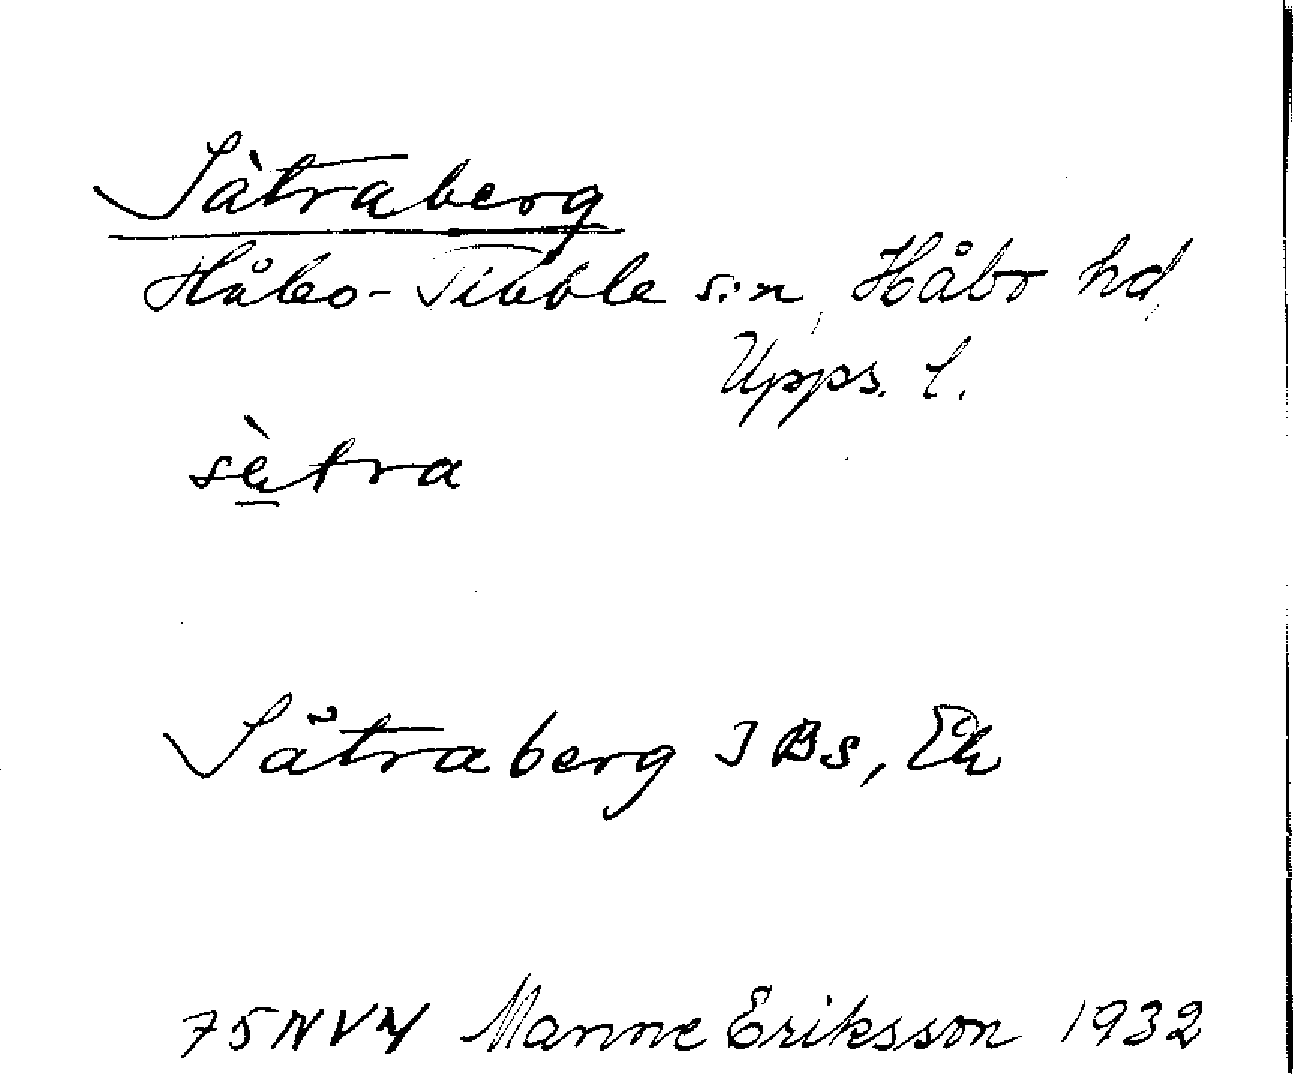 Sàtraberg
Håbo-Tibble s:n, Håbo hd,
Upps. l.
sè̱tra
Sätraberg JBs, Ek
75NV4 Manne Eriksson 1932